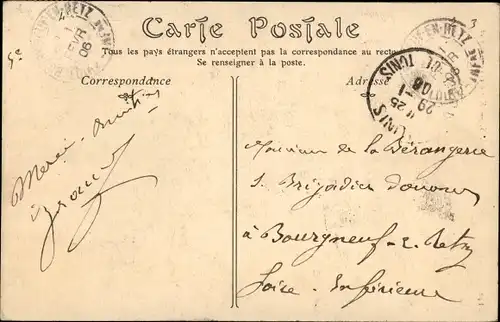 Carte Postale
Tous les pays étrangers n'acceptent pas la correspondance au recto
Se renseigner à la poste.
Correspondance
Adresse
Merci - amitiés
Monsieur de la Bérangerie
S. Brigadier
à Bourgneuf-e-Retz
Loire-Inférieure
EN-RETZ
1
FVR
06
EN-RETZ
TUNIS
TUNIS
29-1
06
3